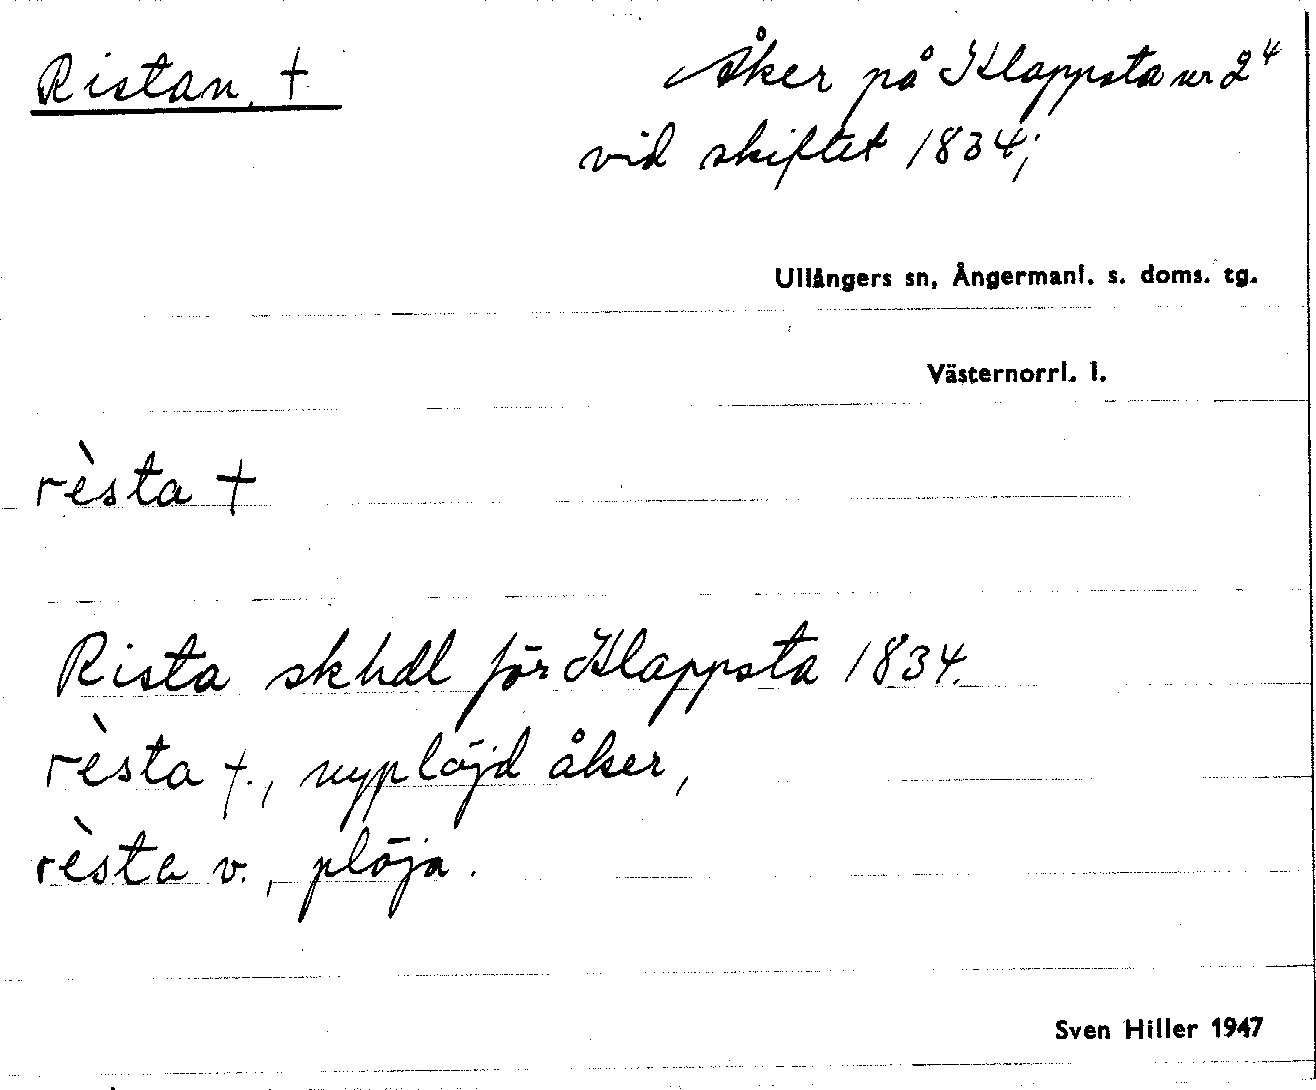 Ristan, †
Åker på Klappsta nr 2⁴
vid skiftet 1834;
Ullångers sn, Ångermanl. s. doms. tg.
Västernorrl. l.
rèsta †
Rista skhdl för Klappsta 1834.
rèsta f., nyplöjd åker,
rèsta v., plöja.
Sven Hiller 1947